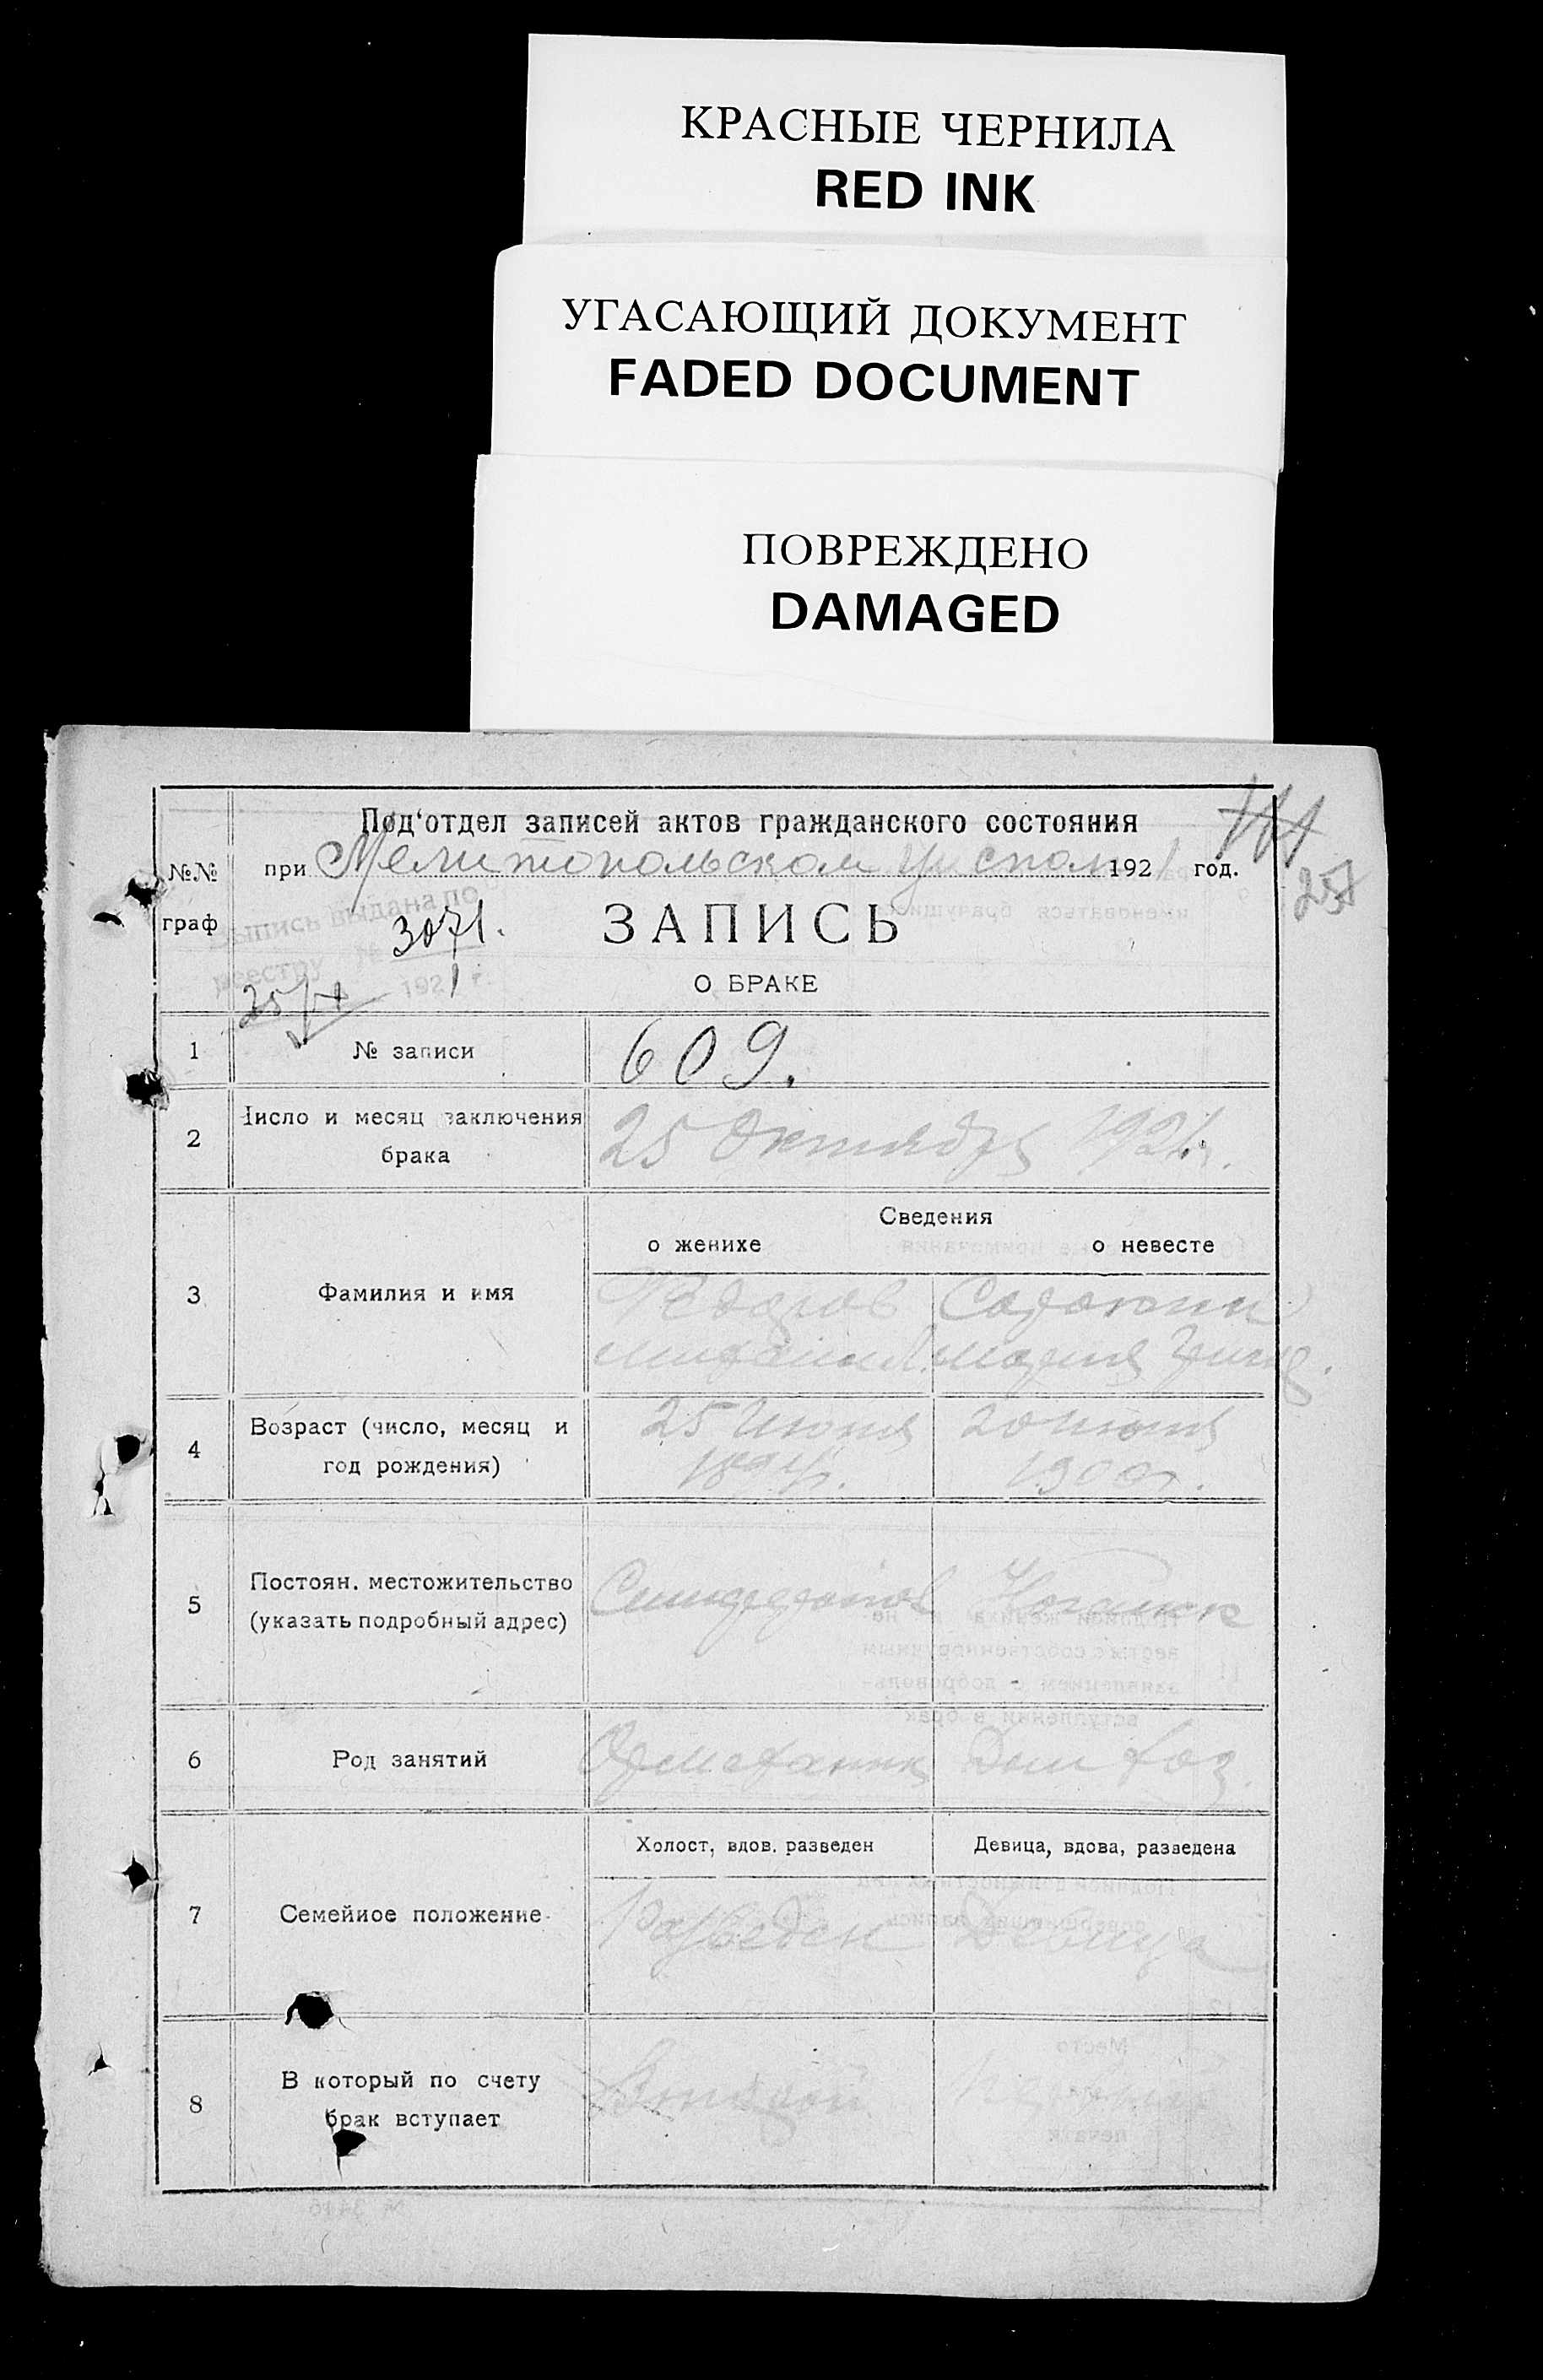 КРАСНЫЕ ЧЕРНИЛА
RED INK
УГАСАЮЩИЙ ДОКУМЕНТ
FADED DOCUMENT
ПОВРЕЖДЕНО
DAMAGED
Под‘отдел записей актов гражданского состояния
№№ граф
при Мелитопольском 1921 год.
257
Выпись выдана по
реестру № 3071.
25/IX 1921 г.
ЗАПИСЬ
О БРАКЕ
1 № записи 609.
2 Число и месяц заключения брака 25 Октября 1921 г.
Сведения
о женихе о невесте
3 Фамилия и имя Федоров
Мария
4 Возраст (число, месяц и год рождения) 25 Июня 20 июня
1894 г. 1900 г.
5 Постоян. местожительство
(указать подробный адрес) Ногайск
6 Род занятий Дом хоз.
Холост, вдов. разведен Девица, вдова, разведена
7 Семейное положение Разведен Девица
8 В который по счету
брак вступает Второй